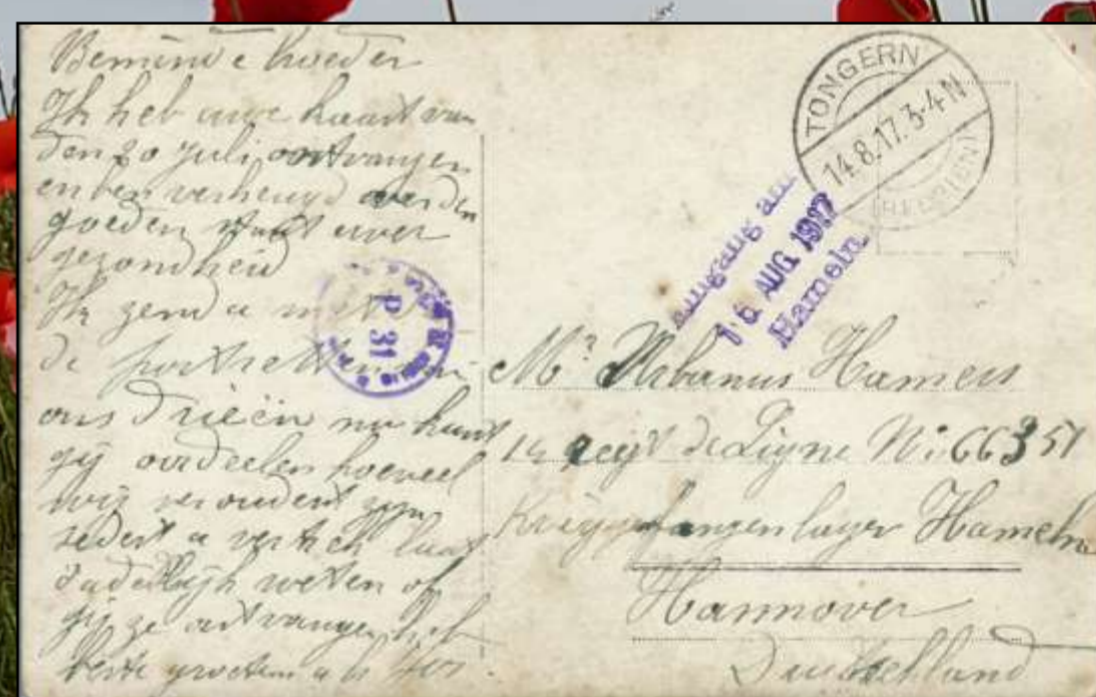 Beminde broeder
Ik heb uwe kaart van
den 20 juli ontvangen
en ben verheugd over den
goeden staat uwer
gezondheid
Ik zend u met
de portretten van
ons drieën nu kunt
gij oordeelen hoeveel
wij verouderd zyn
sedert u vertrek laat
dadelijk weten of
gij ze ontvangen heb
beste groeten
TONGERN
14.8.17. 3-4 N
(BELGIEN)
Eingang am
16 AUG 1917
Hameln.
P 31
Mr Urbanus Hamers
14 regt de Ligne No 66351
Kriegsfangenlager Hameln
Hannover
Deutschland